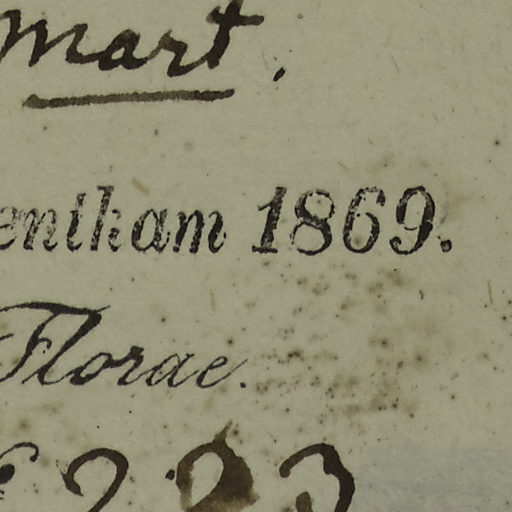 Mart.
entham 1869.
Florae.